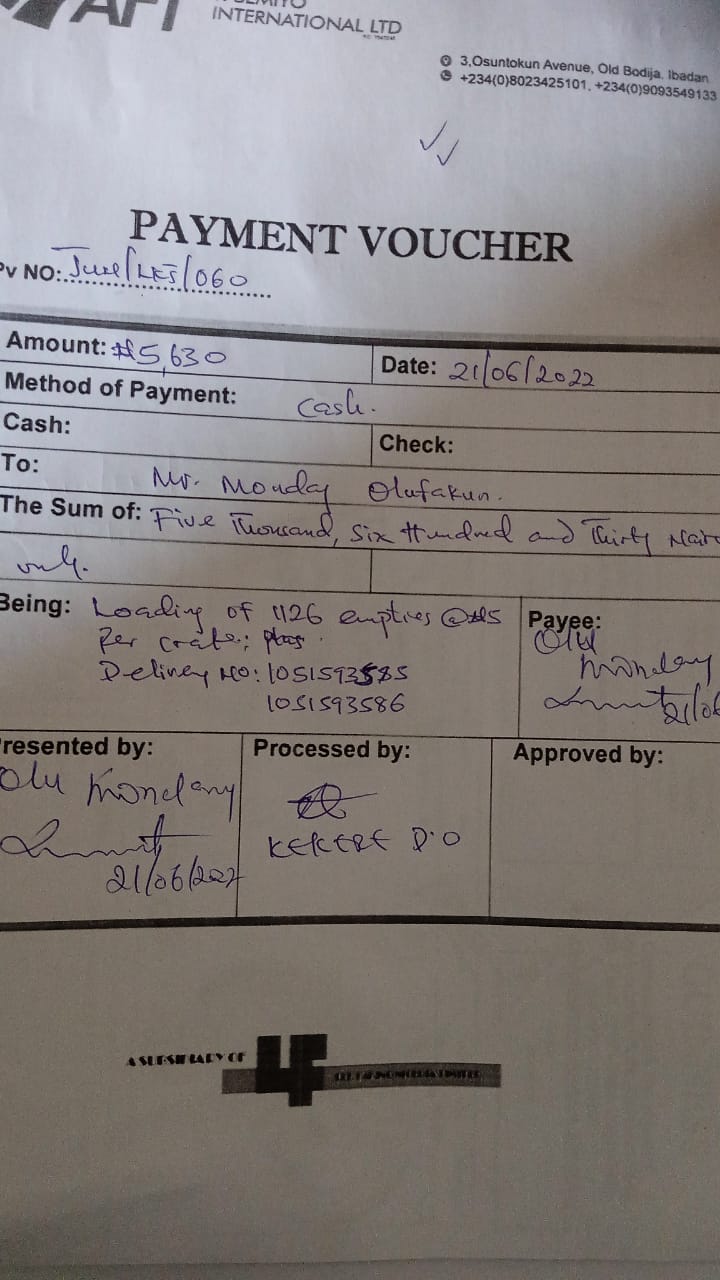 AFI
INTERNATIONAL LTD
3,Osuntokun Avenue, Old Bodija, Ibadan
+234(0)8023425101, +234(0)9093549133
PAYMENT VOUCHER
Pv NO: June/LES/060
Amount: ₦5,630
Date: 21/06/2022
Method of Payment: Cash.
Cash:
Check:
To: Mr. Monday Olufakun.
The Sum of: Five Thousand, Six Hundred and Thirty Nair
only.
Being: Loading of 1126 empties @₦5
Per crate;
Delivery NO: 1051593585
1051593586
Payee:
Olu
Monday
21/06
resented by:
Olu Monday
21/06/2022
Processed by:
KEKERE D.O
Approved by:
A SUBSIDIARY OF
LF